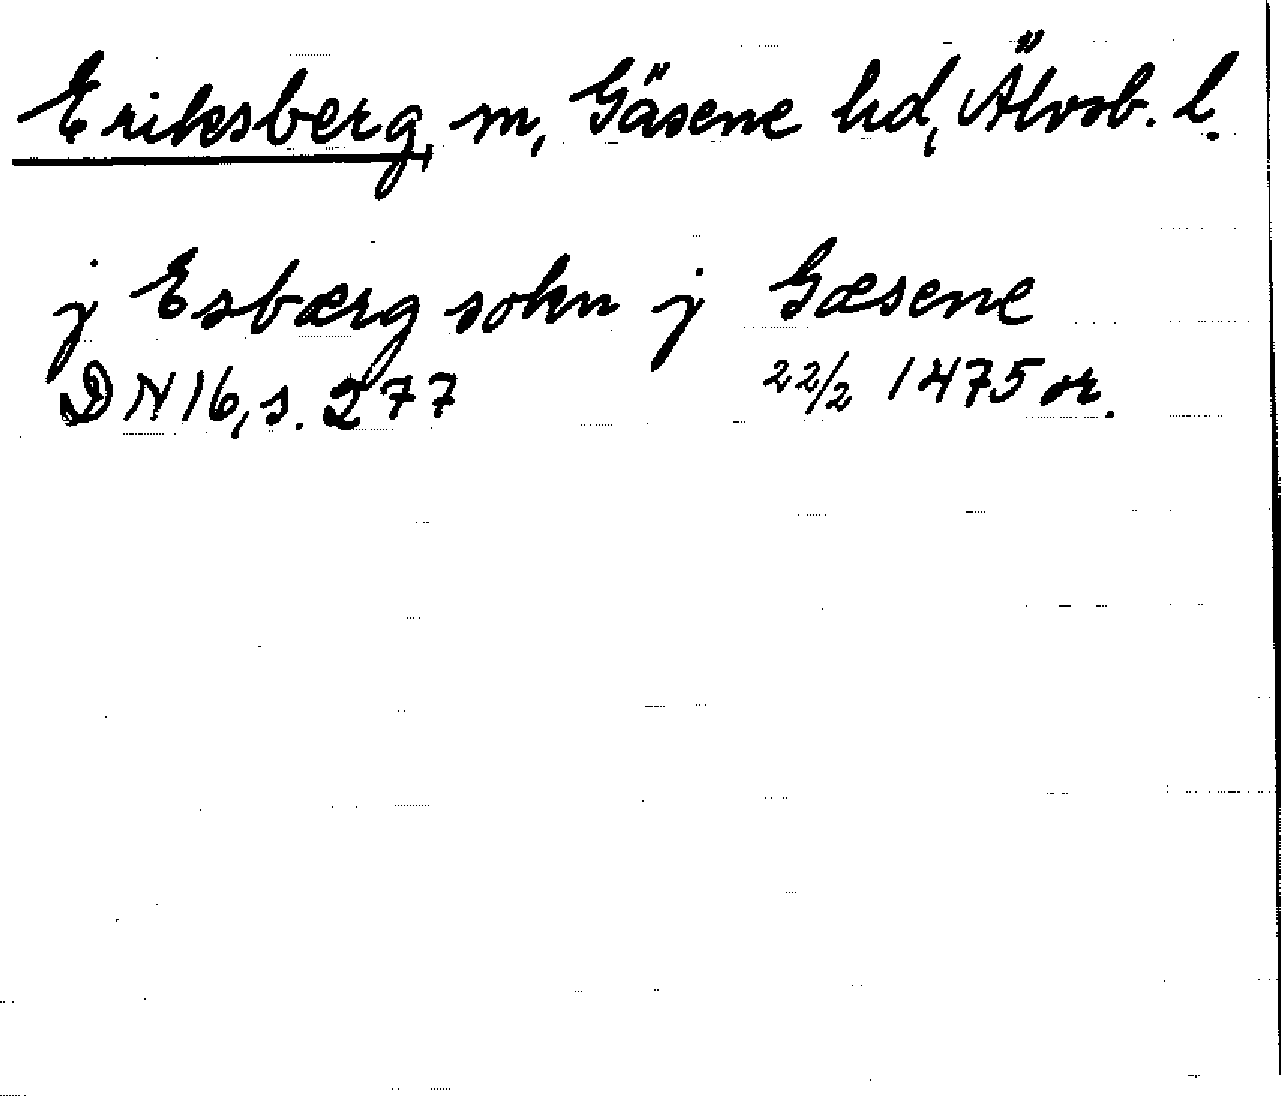 Eriksberg, sn, Gäsene hd, Älvsb. l.
j Esbærg sokn j Gæsene
DN 16, s. 277 22/2 1475 or.